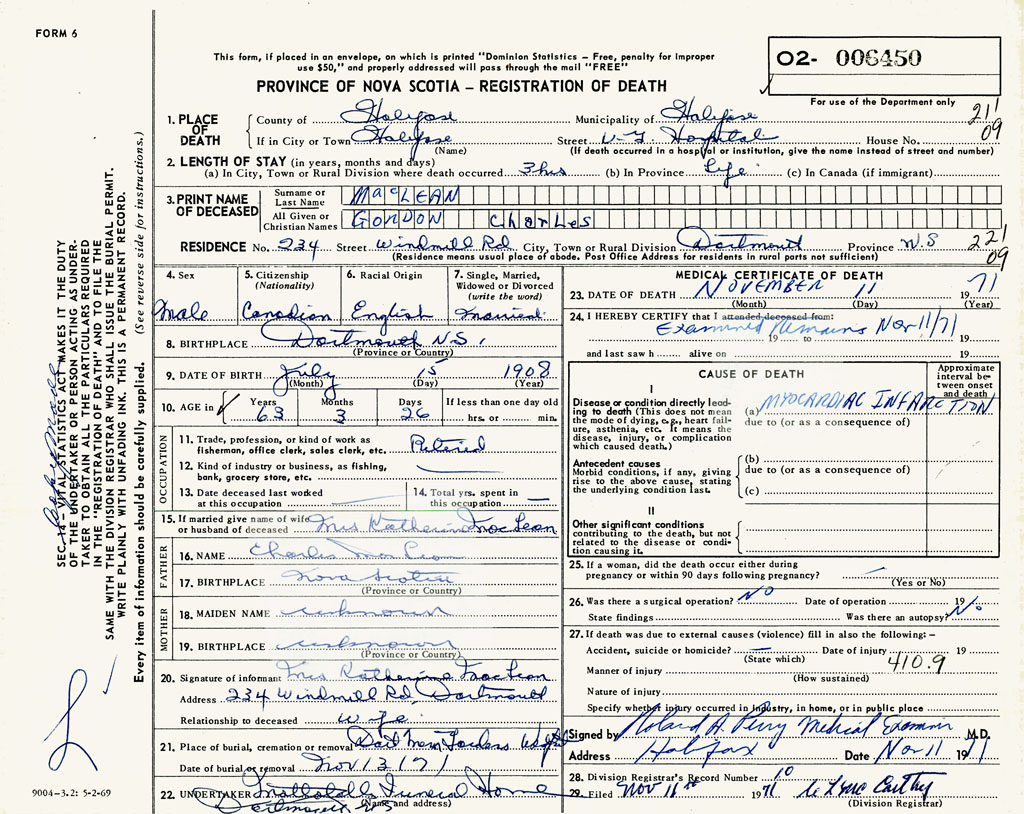 FORM 6
This form, if placed in an envelope, on which is printed "Dominion Statistics – Free, penalty for improper
use $50," and properly addressed will pass through the mail "FREE"
O2- 006450
For use of the Department only
PROVINCE OF NOVA SCOTIA – REGISTRATION OF DEATH
21
09
1. PLACE OF DEATH
County of Halifax Municipality of Halifax
If in City or Town Halifax Street V.G. Hospital House No.
(Name) (If death occurred in a hospital or institution, give the name instead of street and number)
2. LENGTH OF STAY (in years, months and days)
(a) In City, Town or Rural Division where death occurred 3 hrs (b) In Province Life (c) In Canada (if immigrant)
3. PRINT NAME OF DECEASED
Surname or Last Name MacLEAN
All Given or Christian Names GORDON CharLes
RESIDENCE No. 234 Street Windmill Rd City, Town or Rural Division Dartmouth Province N.S
(Residence means usual place of abode. Post Office Address for residents in rural parts not sufficient)
221
09
4. Sex
Male
5. Citizenship (Nationality)
Canadian
6. Racial Origin
English
7. Single, Married, Widowed or Divorced (write the word)
Married
8. BIRTHPLACE Dartmouth N.S.
(Province or Country)
9. DATE OF BIRTH July 15 1908
(Month) (Day) (Year)
10. AGE in Years Months Days If less than one day old
63 3 26 hrs. or min.
OCCUPATION
11. Trade, profession, or kind of work as
fisherman, office clerk, sales clerk, etc. Retired
12. Kind of industry or business, as fishing,
bank, grocery store, etc.
13. Date deceased last worked
at this occupation
14. Total yrs. spent in
this occupation
15. If married give name of wife
or husband of deceased Mrs Katherine MacLean
FATHER
16. NAME Charles MacLean
17. BIRTHPLACE Nova Scotia
(Province or Country)
MOTHER
18. MAIDEN NAME unknown
19. BIRTHPLACE unknown
(Province or Country)
20. Signature of informant Mrs Katherine MacLean
Address 234 Windmill Rd, Dartmouth
Relationship to deceased wife
21. Place of burial, cremation or removal Dart Mem Gardens
Date of burial or removal Nov 13 / 71
22. UNDERTAKER Funeral Home
(Name and address)
Dartmouth N.S
MEDICAL CERTIFICATE OF DEATH
23. DATE OF DEATH NOVEMBER 11 1971
(Month) (Day) (Year)
24. I HEREBY CERTIFY that I attended deceased from:
Examined Remains Nov 11/71
19 to 19
and last saw h alive on 19
CAUSE OF DEATH
Approximate interval between onset and death
I
Disease or condition directly leading to death (This does not mean
the mode of dying, e.g., heart failure, asthenia, etc. It means the
disease, injury, or complication
which caused death.)
(a) MYOCARDIAC INFARCTION
due to (or as a consequence of)
Antecedent causes
Morbid conditions, if any, giving
rise to the above cause, stating
the underlying condition last.
(b)
due to (or as a consequence of)
(c)
II
Other significant conditions
contributing to the death, but not
related to the disease or condition causing it.
25. If a woman, did the death occur either during
pregnancy or within 90 days following pregnancy?
(Yes or No)
26. Was there a surgical operation? NO Date of operation 19
State findings Was there an autopsy? No
27. If death was due to external causes (violence) fill in also the following: –
Accident, suicide or homicide? Date of injury 19
(State which)
Manner of injury 410.9
(How sustained)
Nature of injury
Specify whether injury occurred in industry, in home, or in public place
Signed by Roland A. Perry Medical Examiner M.D.
Address Halifax Date Nov 11 1971
28. Division Registrar's Record Number 10
29. Filed Nov 1971
(Division Registrar)
SEC. 14 – VITAL STATISTICS ACT MAKES IT THE DUTY
OF THE UNDERTAKER OR PERSON ACTING AS UNDERTAKER TO OBTAIN ALL THE PARTICULARS REQUIRED
IN THE "REGISTRATION OF DEATH" AND TO FILE THE
SAME WITH THE DIVISION REGISTRAR WHO SHALL ISSUE THE BURIAL PERMIT.
WRITE PLAINLY WITH UNFADING INK. THIS IS A PERMANENT RECORD.
Every item of information should be carefully supplied. (See reverse side for instructions.)
9004-3.2: 5-2-69